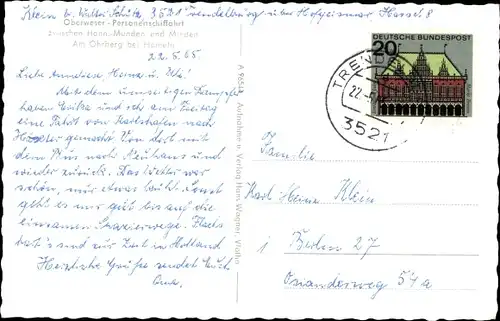 Klein b. Walter Schütz 3521 Trendelburg über Hofgeismar Kassel 8
Oberweser - Personenschiffahrt
zwischen Hann.-Münden und Minden
Am Ohrberg bei Hameln
22.5.65.
Liebe Anneliese, Heinz u. Ute!
Mit dem umseitigen Dampfer
haben Erika und ich am Freitag
eine Fahrt von Karlshafen nach
Höxter gemacht. Von dort mit
dem Bus nach Neuhaus und
wieder zurück. Das Wetter war
schön, nur etwas kühl. Sonst
geht es mir gut bis auf die
einsamen Spazierwege.
sind zur Zeit in Holland
Herzliche Grüße sendet Euch
A 9651 Aufnahme u. Verlag Hans Wagner, Vlotho
DEUTSCHE BUNDESPOST
20
TREND
22.-5.
3521
Familie
Karl Heinz Klein
i Berlin 27
Osianderweg 54a